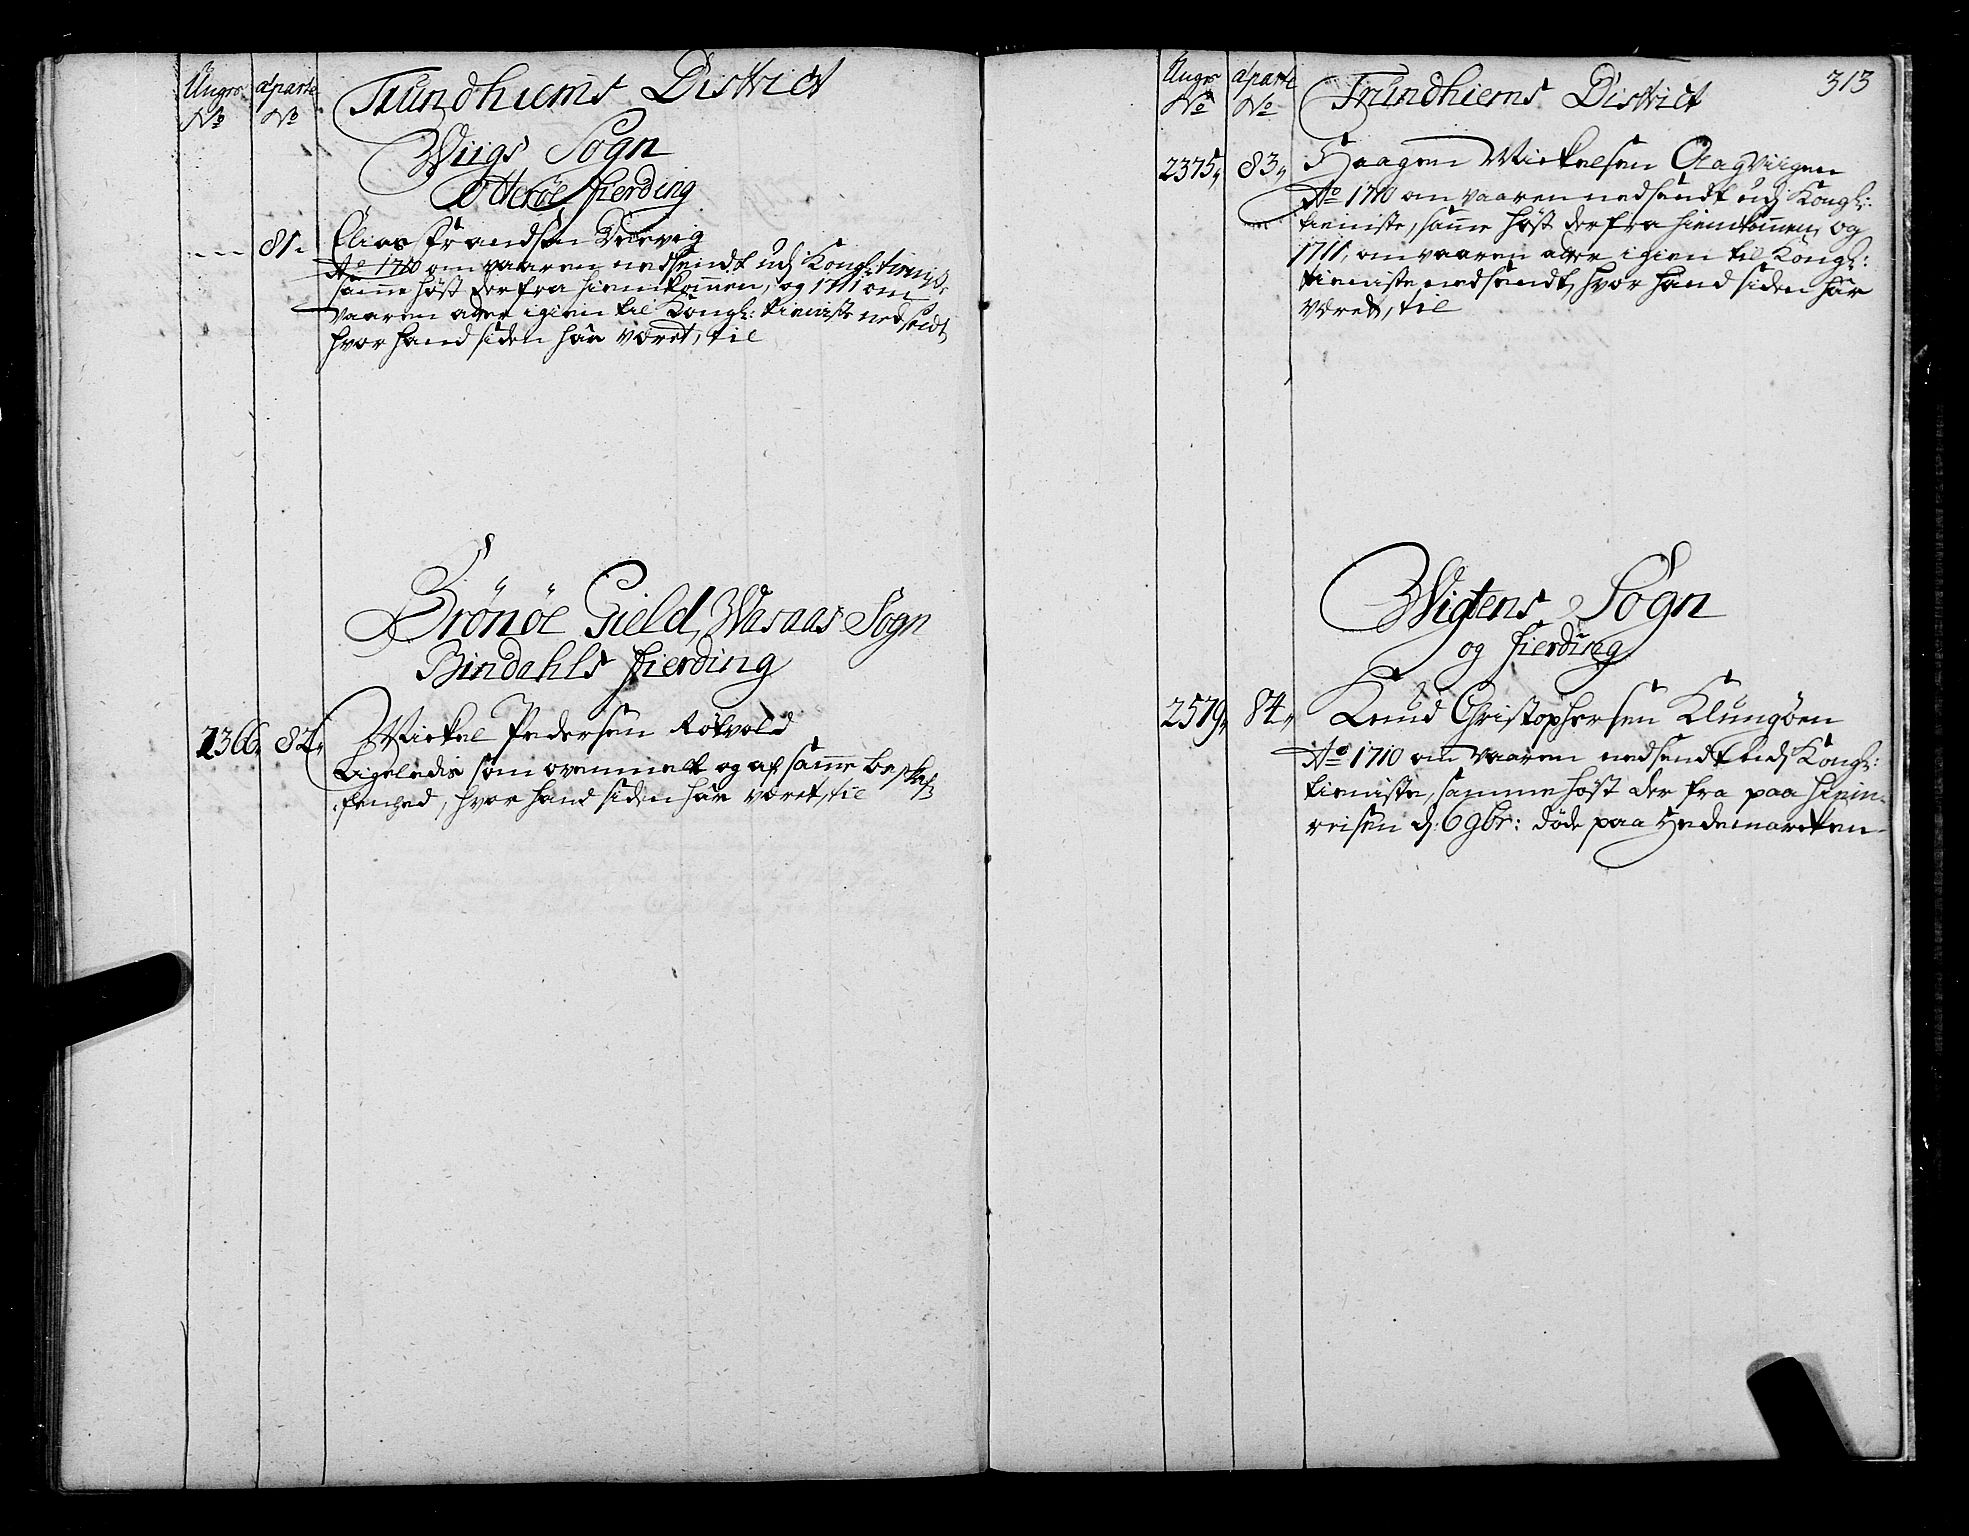 Ungr. No
aparte No
Trundhiems District
Wiigs Sogn
Otterøe fierding
--- 81.
Elias Frandsøn
Ao 1710 om vaaren nedsendt udj Kongl: tienis.
samme høst der fra hiemkomen, og 1711 om
vaaren atter igien til Kongl: tieniste nedsendt
hvor hand siden har været, til
Brönöe Gield, Wasaas Sogn
Bindahls fierding
2366. 82.
Mickel Pedersen Røtvold
Ligeledis som ovenmelt og af samme beskaf-
fenhed, hvor hand siden har været, til
Ungr. No
aparte No
313
Trundhiems District
2375. 83.
Haagen Mickelsen
Ao 1710 om vaaren nedsendt udj Kongl:
tieniste, samme høst der fra hiemkommen, og
1711, om vaaren atter igien til Kongl:
tieniste nedsendt, hvor hand siden har
været, til
Wigtens Sogn
og fierding
2579. 84.
Knud Christophersen Klungöen
Ao 1710 om vaaren nedsendt udj Kongl:
tieniste, samme høst der fra paa hiem-
reisen d. 6 9br: døde paa Hedemarcken